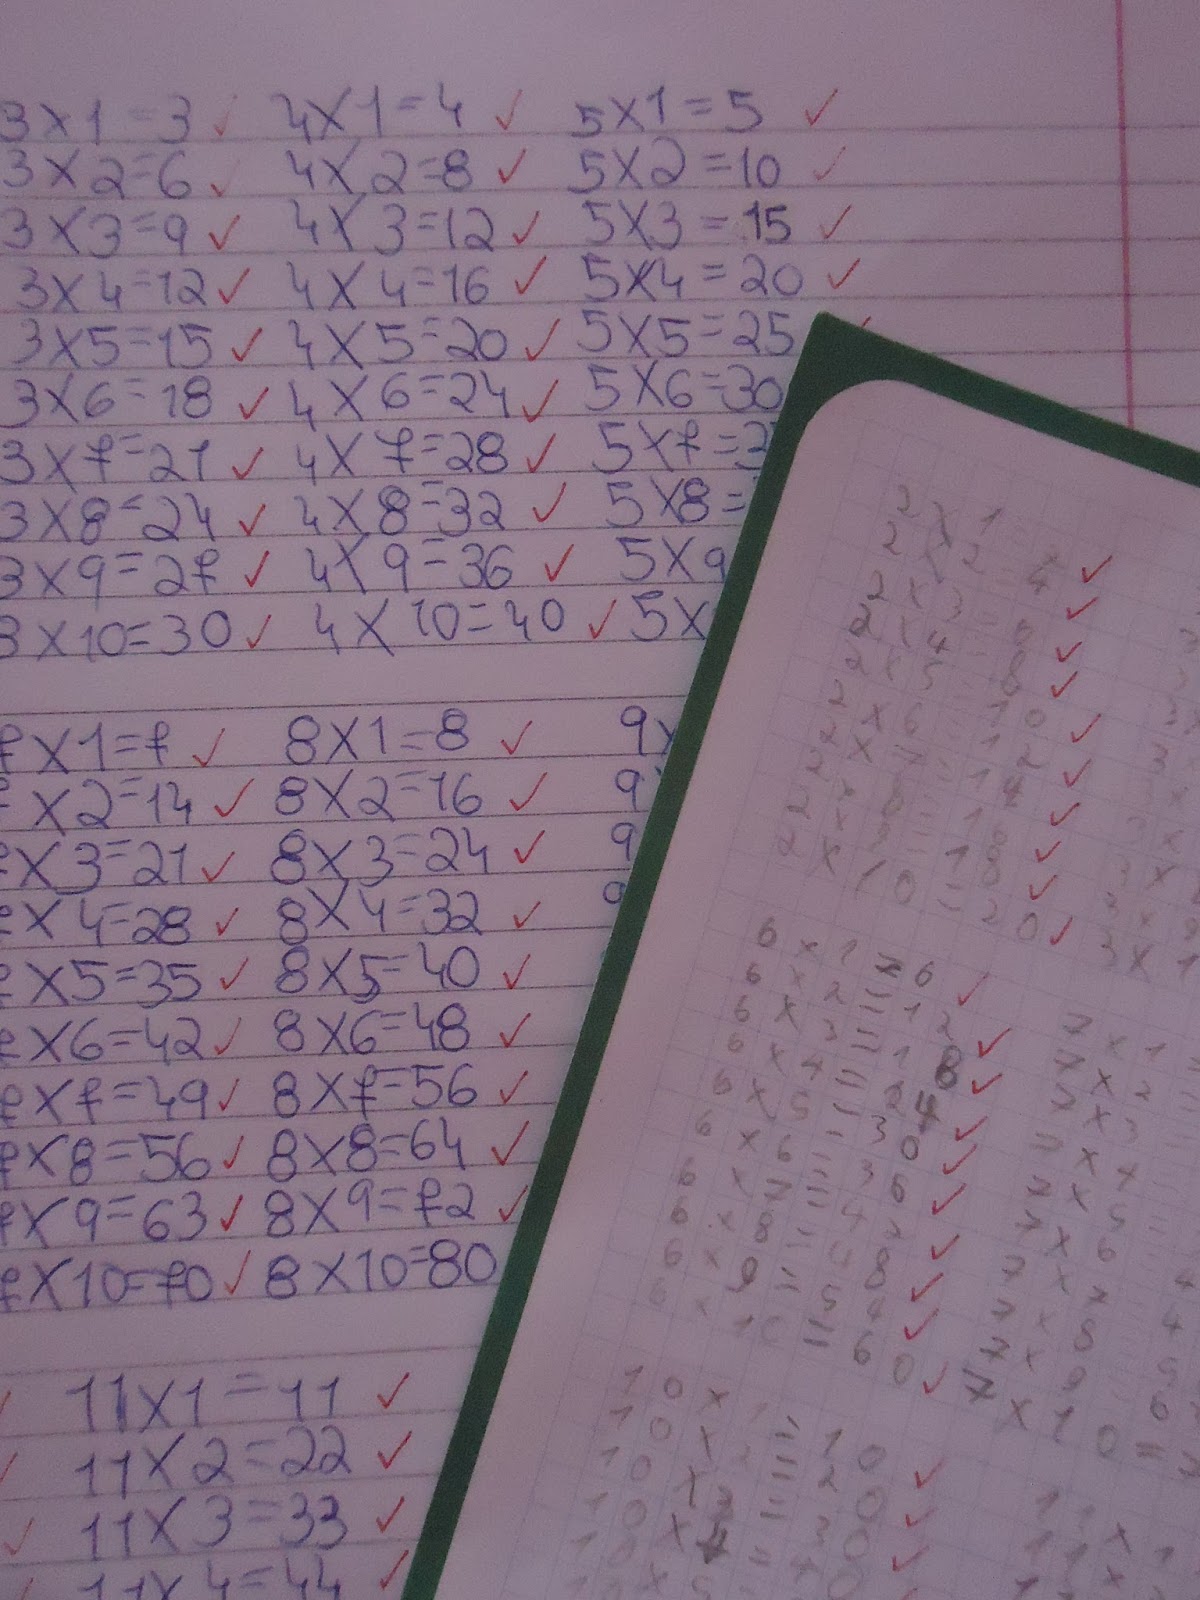 3x1=3 4x1=4 5x1=5
3x2=6 4x2=8 5x2=10
3x3=9 4x3=12 5x3=15
3x4=12 4x4=16 5x4=20
3x5=15 4x5=20 5x5=25
3x6=18 4x6=24 5x6=30
3x7=21 4x7=28 5x7=3
3x8=24 4x8=32 5x8=
3x9=27 4x9=36 5x9
3x10=30 4x10=40 5x
7x1=7 8x1=8 9x
x2=14 8x2=16 9
7x3=21 8x3=24 9
7x4=28 8x4=32 9
7x5=35 8x5=40
7x6=42 8x6=48
7x7=49 8x7=56
7x8=56 8x8=64
7x9=63 8x9=72
7x10=70 8x10=80
11x1=11
11x2=22
11x3=33
11x4=44
2x1
2x2=4
2x3=
2x4=8
2x5=10
2x6=12
2x7=14
2x8=16
2x9=18
2x10=20 3x1
6x1=6 7x1=
6x2=12 7x2
6x3=18 7x3
6x4=24 7x4
6x5=30 7x5=
6x6=36 7x6=
6x7=42 7x7=4
6x8=48 7x8=5
6x9=54 7x9=6
6x10=60 7x10=7
10x1=10 11x1
10x2=20 11x
10x3=30
10x4=40
10x5=